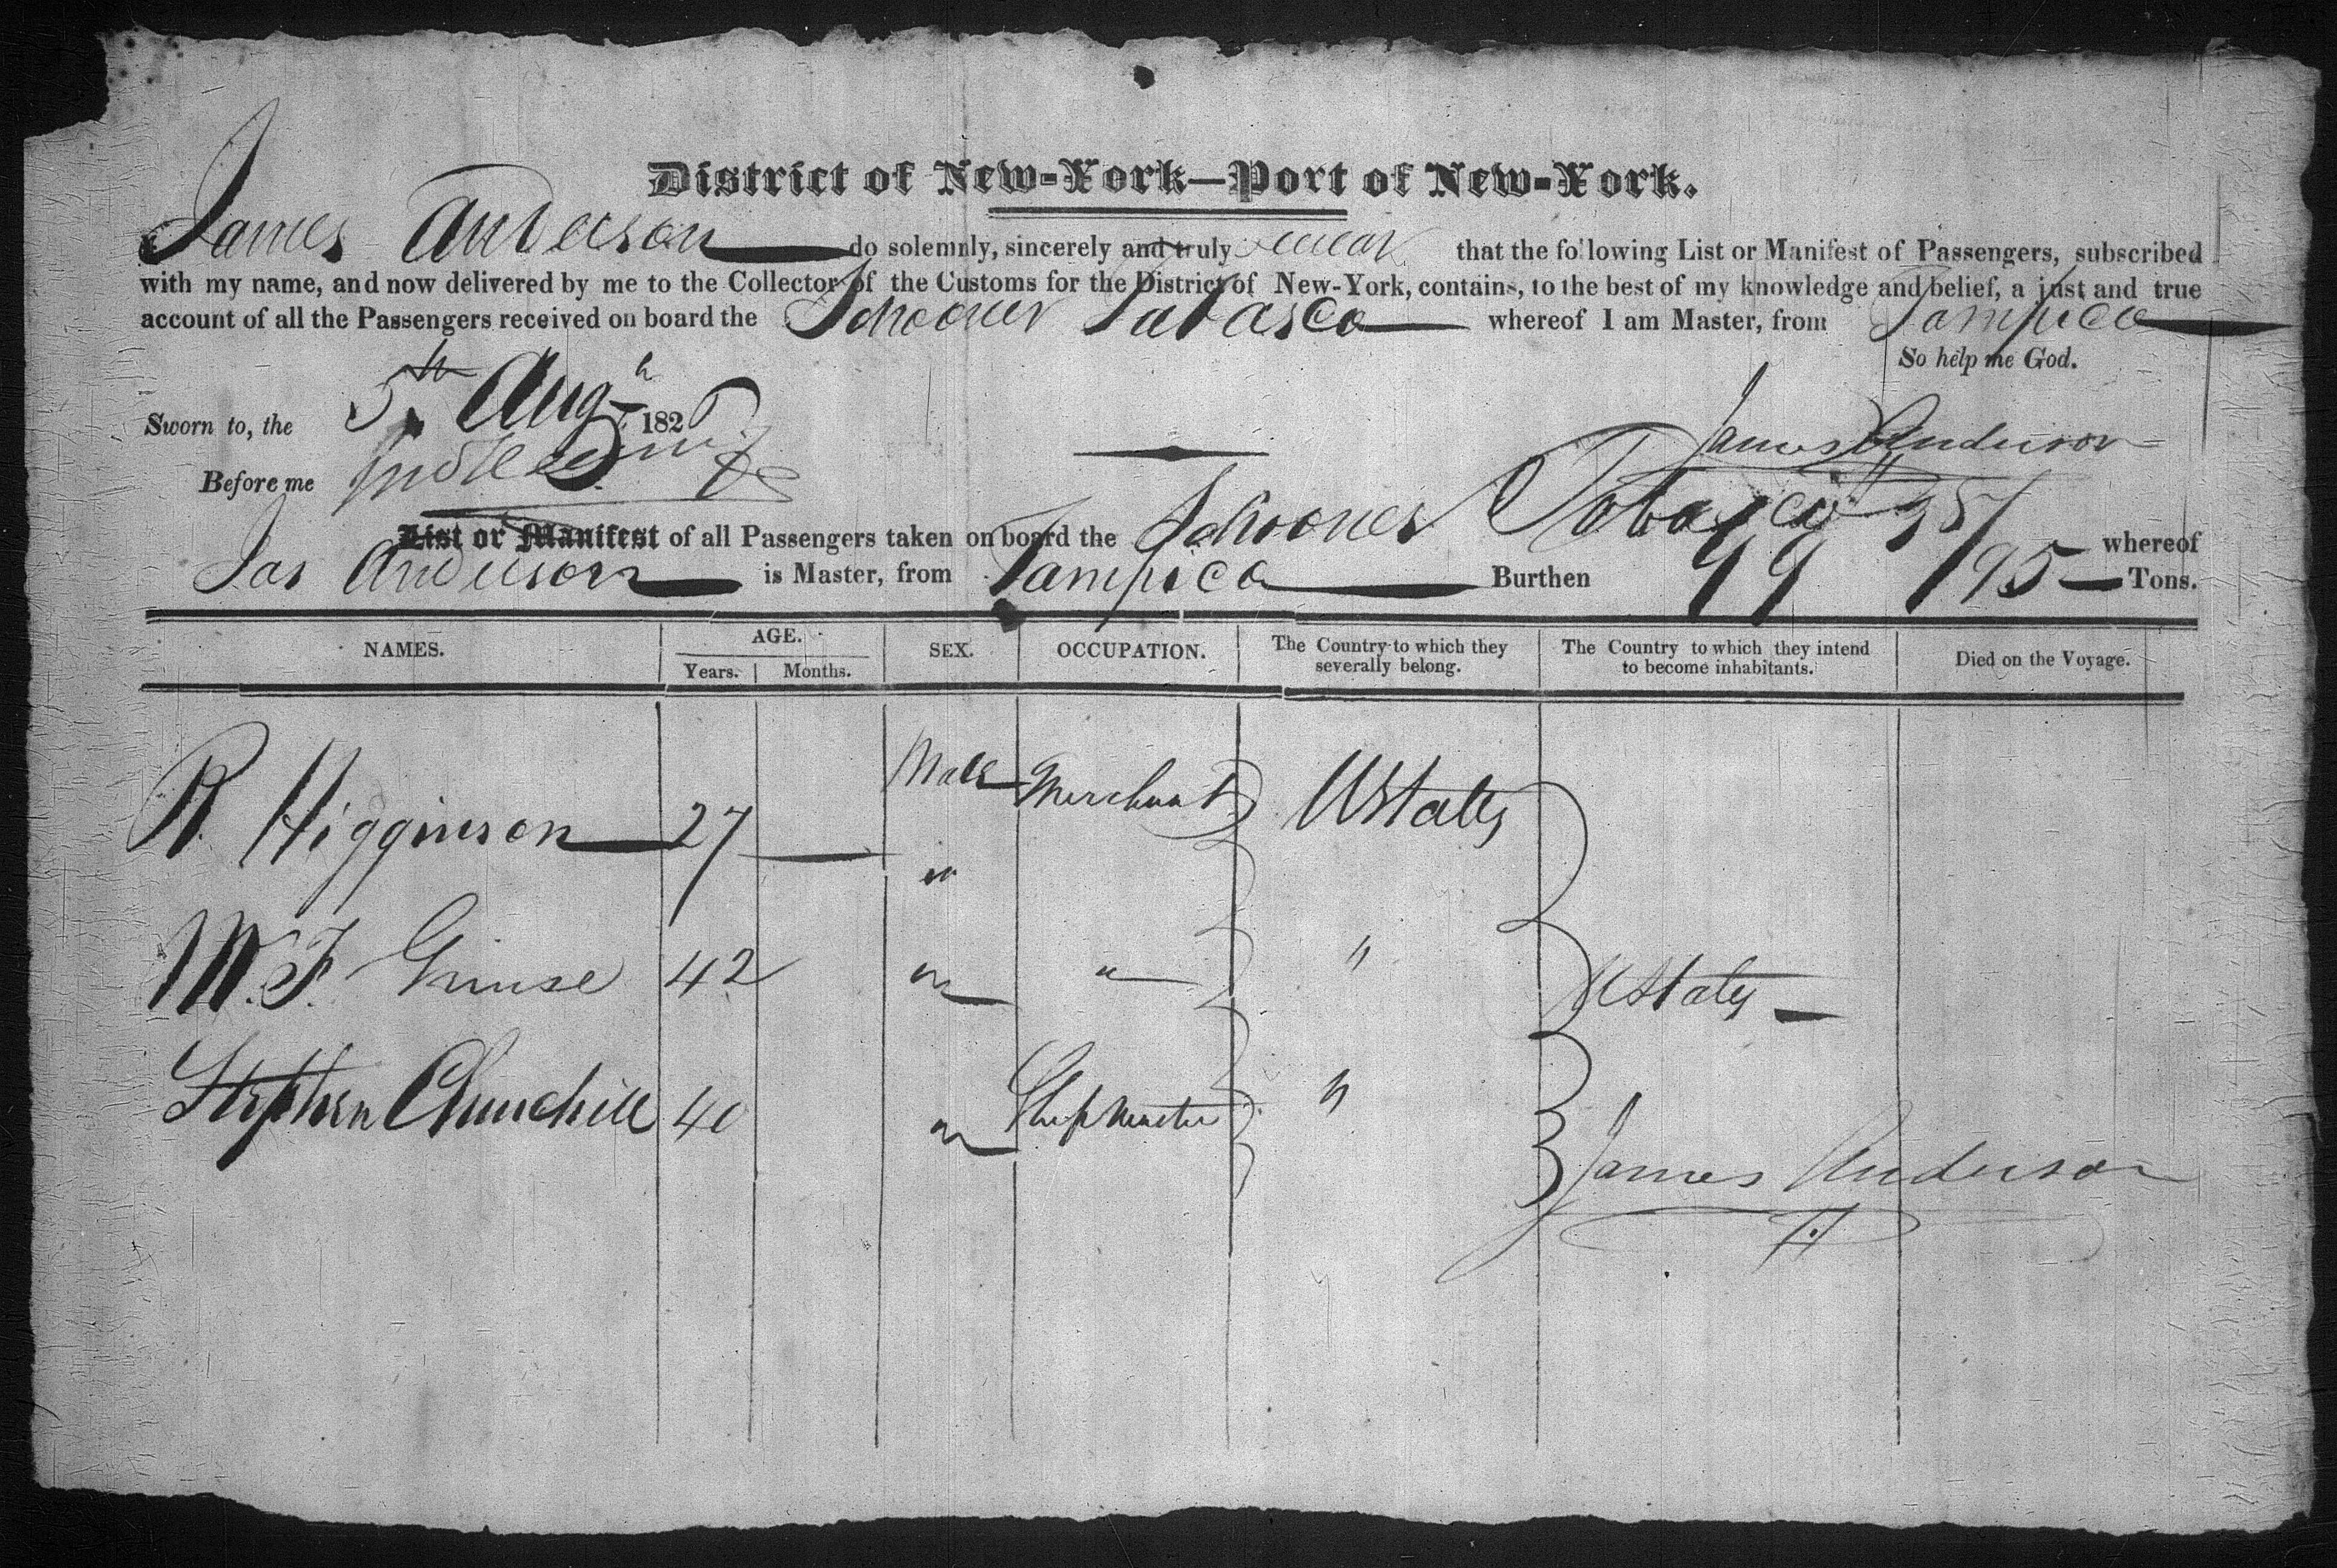 District of New-York—Port of New-York.
James Anderson do solemnly, sincerely and truly swear that the following List or Manifest of Passengers, subscribed
with my name, and now delivered by me to the Collector of the Customs for the District of New-York, contains, to the best of my knowledge and belief, a just and true
account of all the Passengers received on board the Schooner Tabasco whereof I am Master, from Tampico
So help me God.
Sworn to, the 5th Aug 182
James Anderson
Before me
List or Manifest of all Passengers taken on board the Schooner Tobasco whereof
Jas Anderson is Master, from Tampico Burthen 99 /95 Tons.
NAMES. AGE. Years. Months. SEX. OCCUPATION. The Country to which they severally belong. The Country to which they intend to become inhabitants. Died on the Voyage.
R. Higginson 27 Male Merchant UStates
"
W. F. 42 " " " UStates
Stephen Churchill 40 " Shipmaster "
James Anderson